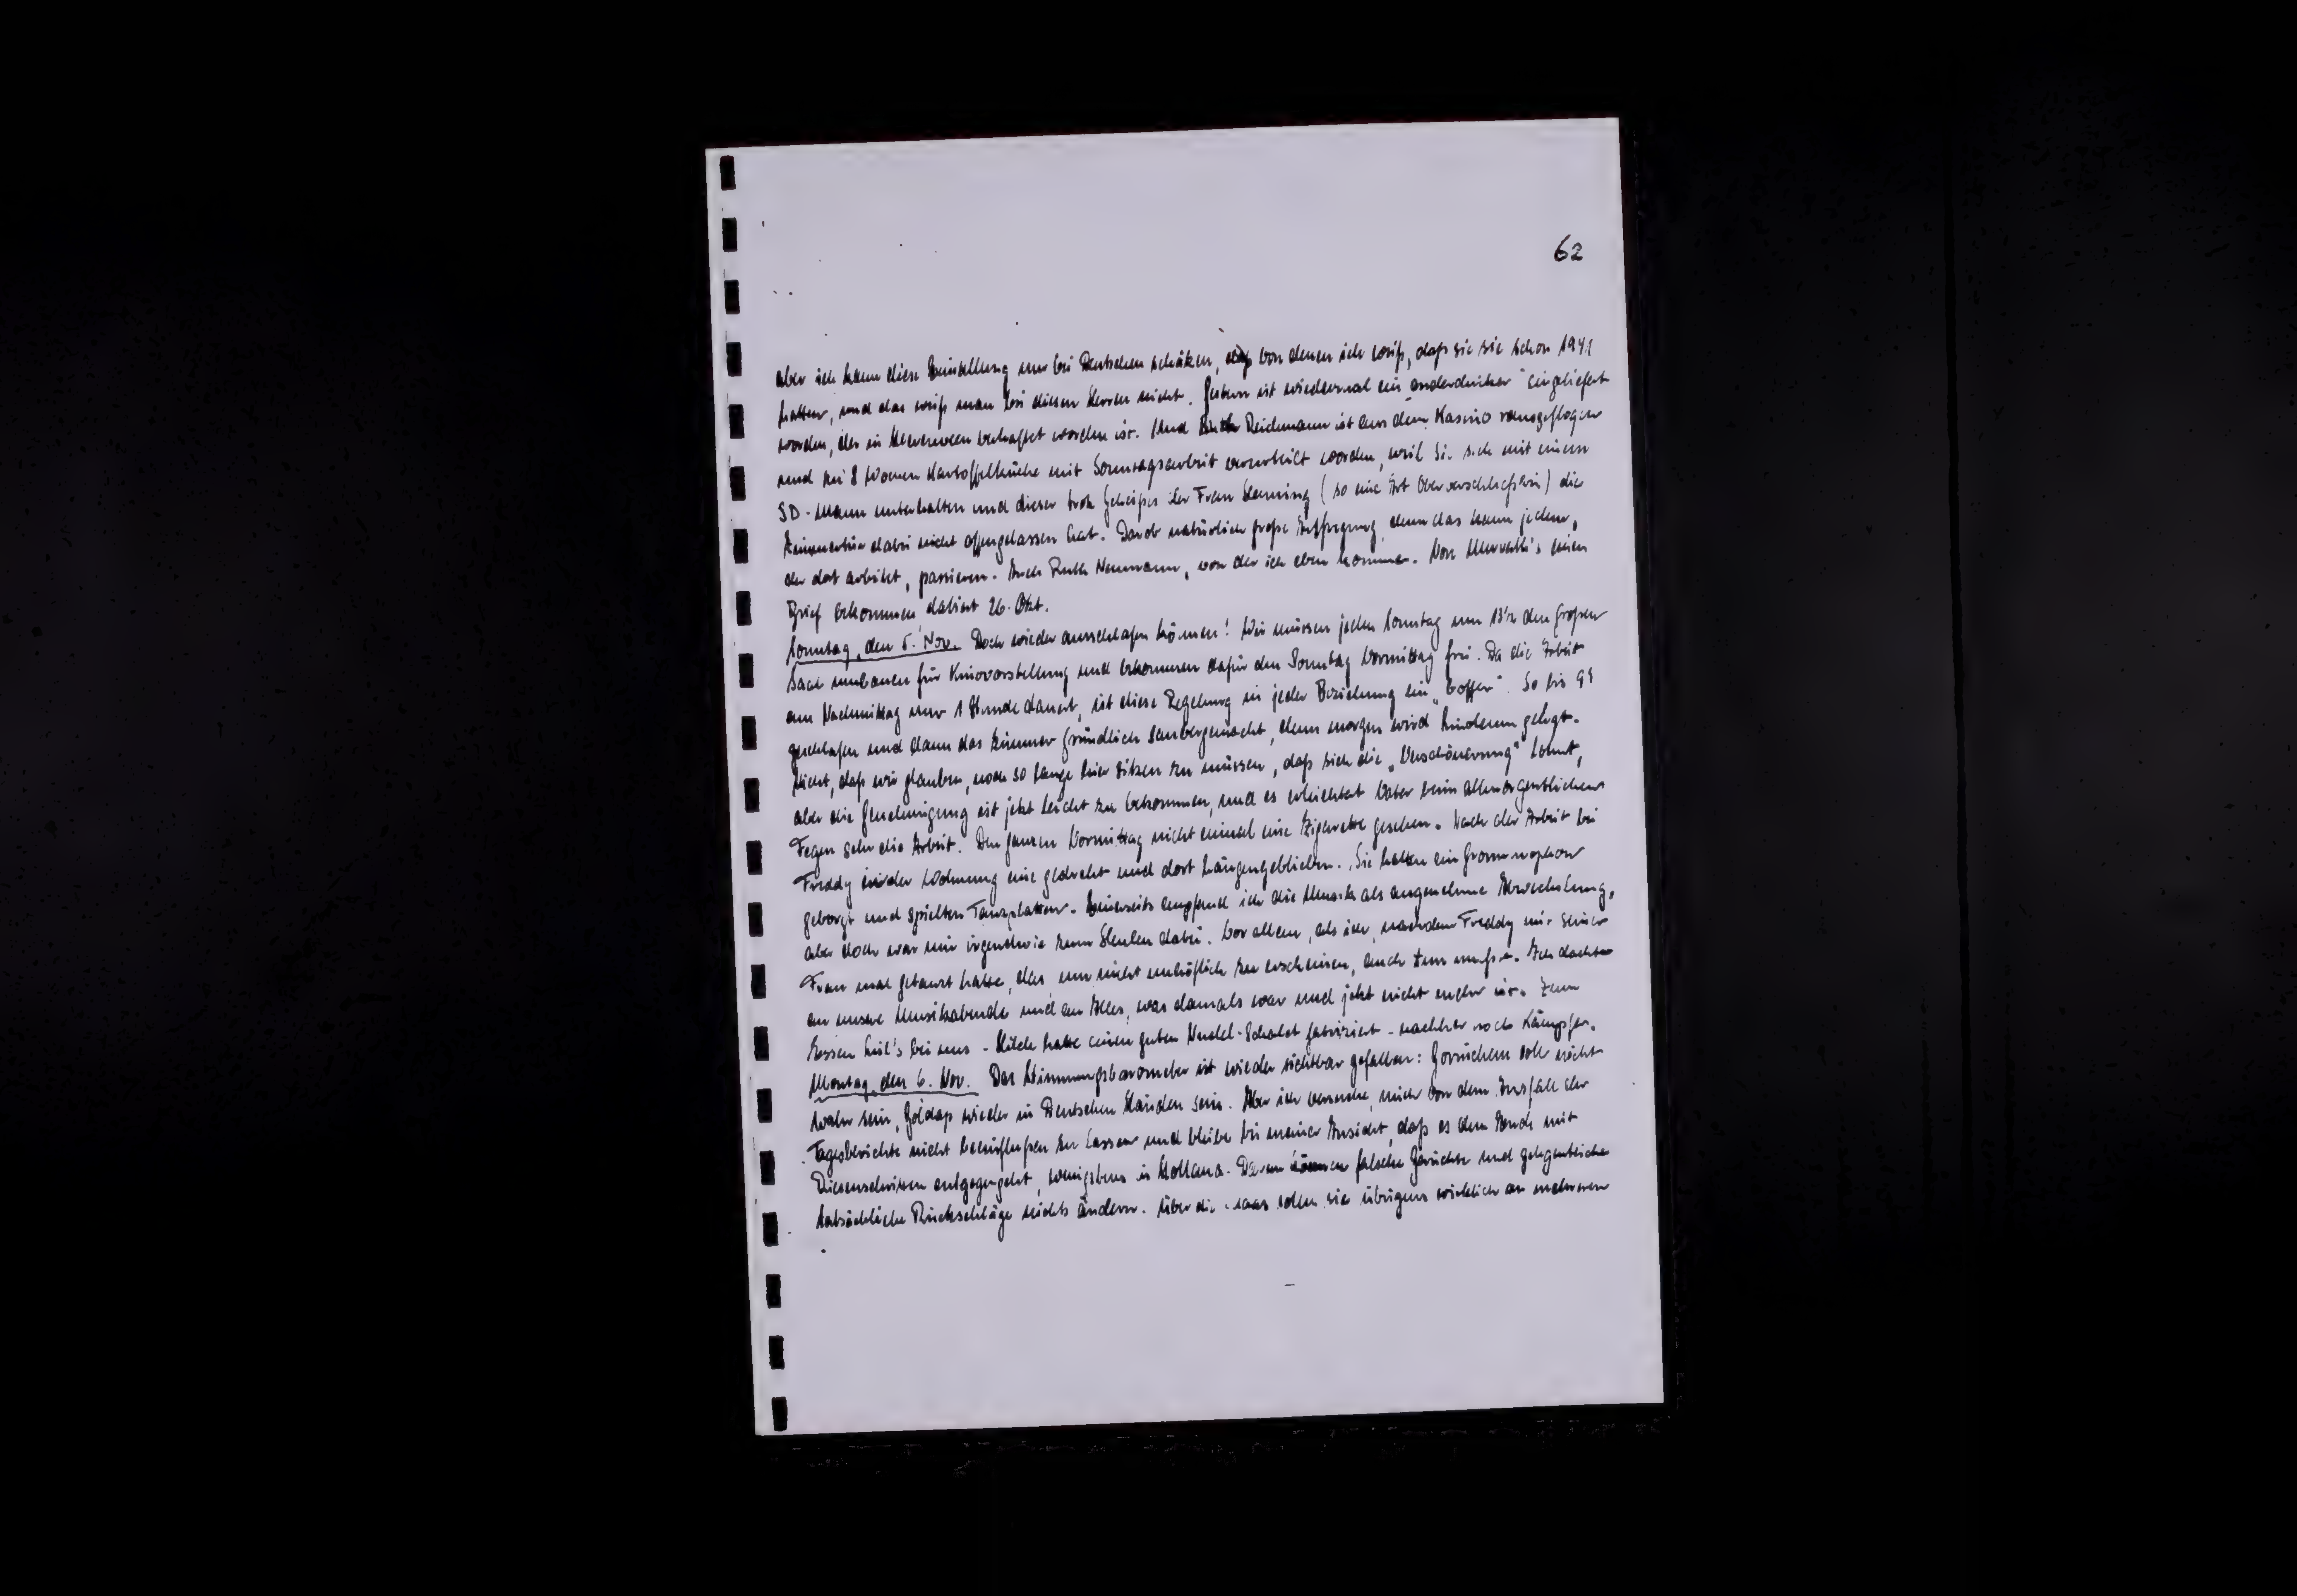 62
aber ich kann diese Einstellung nur bei Deutschen schätzen, von denen ich weiß, daß sie sie schon 1941
hatten, und das weiß man bei diesen Herren nicht. Gestern ist wiedermal ein „onderduiker" eingeliefert
worden, der in Heerenveen verhaftet worden ist. Und Ruth Reichmann ist aus dem Kasino rausgeflogen
und zu 8 Wochen Kartoffelküche mit Sonntagsarbeit verurteilt worden, weil sie sich mit einem
SD-Mann unterhalten und dieser trotz Geheißes der Frau Henning (so eine Art Oberaufseherin) die
Zimmertür dabei nicht offengelassen hat. Darob natürlich große Aufregung, denn das kann jedem,
der dort arbeitet, passieren. Auch Ruth Neumann, von der ich eben komme. Von einen
Brief bekommen, datiert 26. Okt.
Sonntag, den 5. Nov. Doch wieder ausschlafen können! Wir müssen jeden Sonntag um 13½ den großen
Saal umbauen für Kinovorstellung und bekommen dafür den Sonntag Vormittag frei. Da die Arbeit
am Nachmittag nur 1 Stunde dauert, ist diese Regelung in jeder Beziehung ein „boffer". So bis 9¼
geschlafen und dann das Zimmer gründlich saubergemacht, denn morgen wird Linoleum gelegt.
Nicht, daß wir glauben, noch so lange hier sitzen zu müssen, daß sich die „Verschönerung" lohnt,
aber die Genehmigung ist jetzt leicht zu bekommen, und es erleichtert Vater beim allmorgentlichen
Fegen sehr die Arbeit. Den ganzen Vormittag nicht einmal eine Zigarette gesehen. Nach der Arbeit bei
Freddy in der Wohnung eine gedreht und dort hängengeblieben. Sie hatten ein Grammophon
geborgt und spielten Tanzplatten. Einerseits empfand ich die Musik als angenehme Abwechslung,
aber doch war mir irgendwie zum Heulen dabei. Vor allem, als ich, nachdem Freddy mit seiner
Frau mal getanzt hatte, das, um nicht unhöflich zu erscheinen, auch tun mußte. Ich dachte
an unsere Musikabende und an Alles, was damals war und jetzt nicht mehr ist. Zum
Essen bei uns - Hilde hatte einen guten Nudel-Schalet fabriziert - nachher noch Kämpfer.
Montag, den 6. Nov. Das Stimmungsbarometer ist wieder sichtbar gefallen: Gorinchem soll nicht
wahr sein, Goldap wieder in Deutschen Händen sein. Aber ich versuche, mich von dem Ausfall der
Tagesberichte nicht beeinflußen zu lassen und bleibe bei meiner Ansicht, daß es dem Ende mit
Riesenschritten entgegengeht, wenigstens in Holland. Daran können falsche Gerüchte und gelegentliche
tatsächliche Rückschläge nichts ändern. Über die Maas sollen sie übrigens wirklich an mehreren